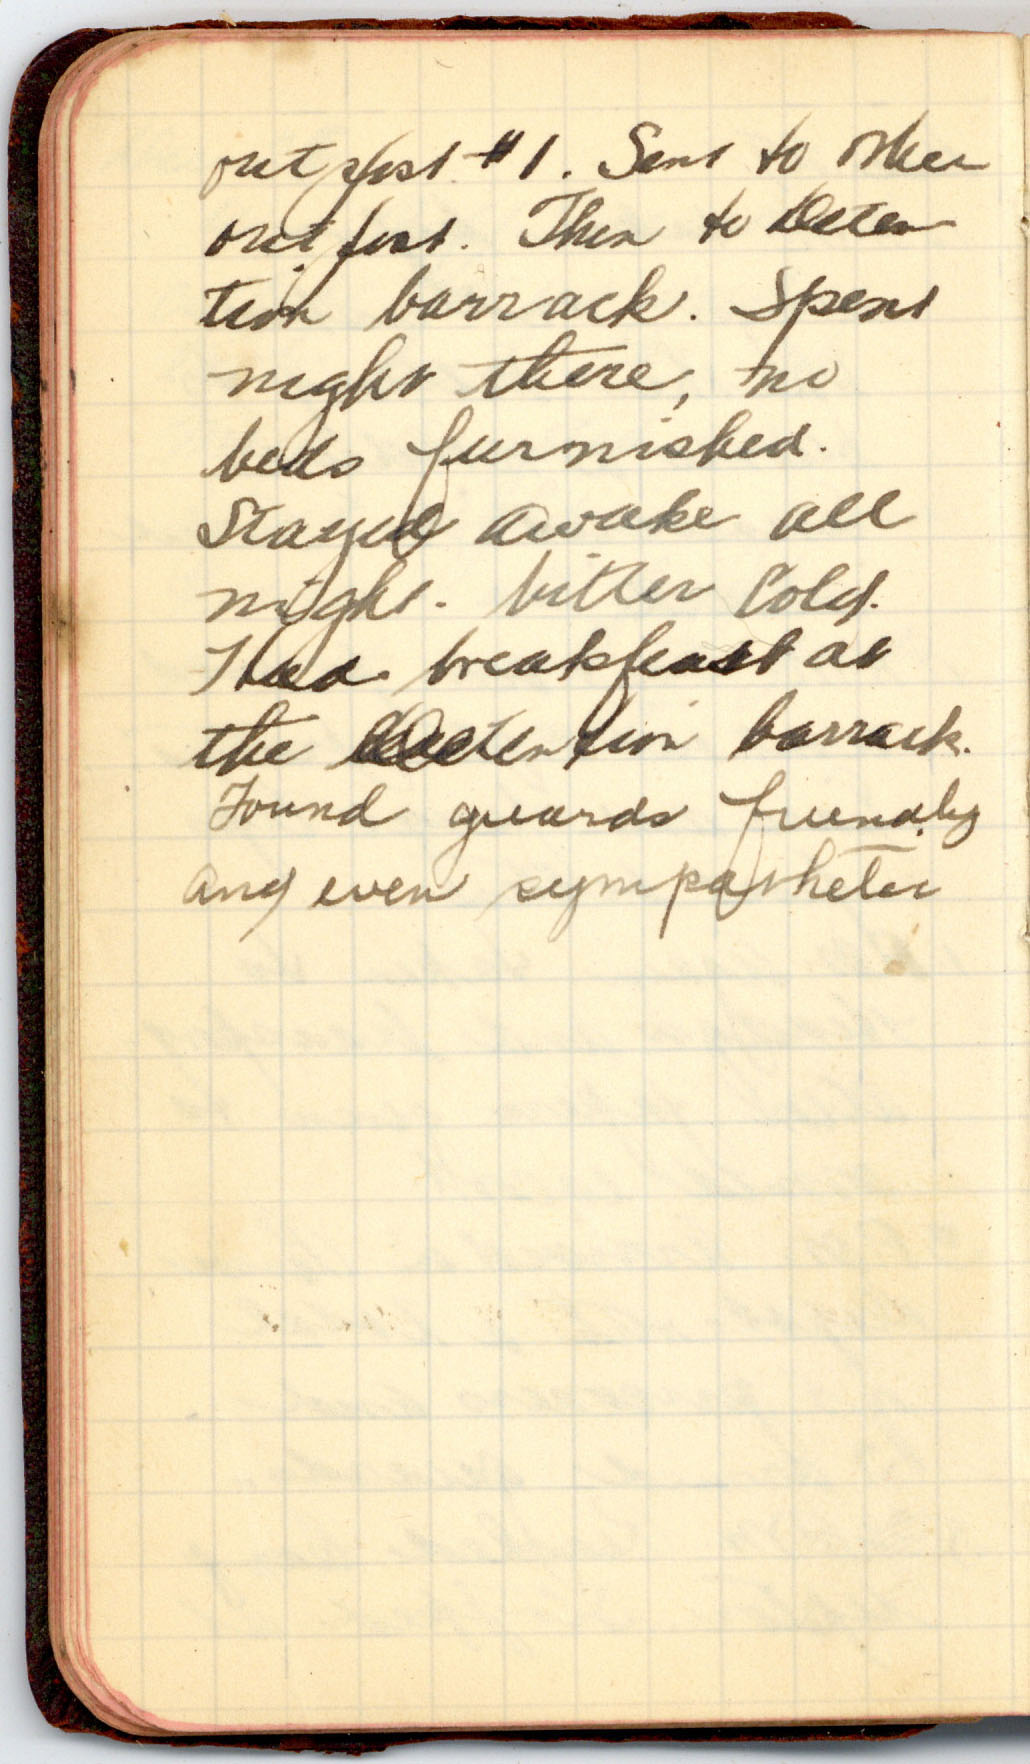 out post #1. Sent to other
out post. Then to Deten
tion barrack. Spent
night there, no
beds furnished.
Stayed awake all
night. bitter Cold.
Had breakfast at
the Detention barrack.
Found guards friendly
and even sympathetic